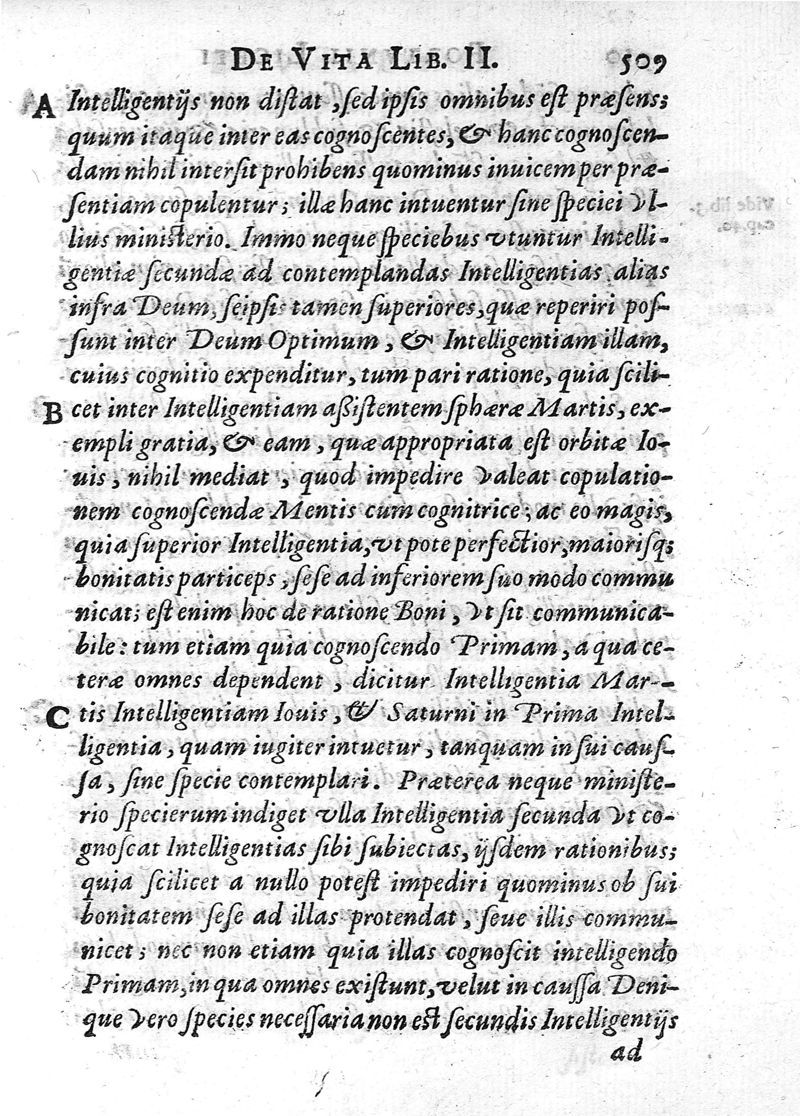 DE VITA LIB. II. 509
A Intelligentijs non distat, sed ipsis omnibus est præsens;
quum itaque inter eas cognoscentes, & hanc cognoscen-
dam nihil intersit prohibens quominus inuicem per præ-
sentiam copulentur; illæ hanc intuentur sine speciei vl-
lius ministerio. Immo neque speciebus vtuntur Intelli-
gentiæ secundæ ad contemplandas Intelligentias alias
infra Deum, seipsis tamen superiores, quæ reperiri pos-
sunt inter Deum Optimum, & Intelligentiam illam,
cuius cognitio expenditur, tum pari ratione, quia scili-
B cet inter Intelligentiam aßistentem sphæræ Martis, ex-
empli gratia, & eam, quæ appropriata est orbitæ Io-
uis, nihil mediat, quod impedire valeat copulatio-
nem cognoscendæ Mentis cum cognitrice; ac eo magis,
quia superior Intelligentia, vt pote perfectior, maiorisq;
bonitatis particeps, sese ad inferiorem suo modo commu
nicat; est enim hoc de ratione Boni, vt sit communica-
bile: tum etiam quia cognoscendo Primam, a qua ce-
teræ omnes dependent, dicitur Intelligentia Mar-
C tis Intelligentiam Iouis, & Saturni in Prima Intel-
ligentia, quam iugiter intuetur, tanquam in sui caus-
sa, sine specie contemplari. Præterea neque ministe-
rio specierum indiget vlla Intelligentia secunda vt co-
gnoscat Intelligentias sibi subiectas, ijsdem rationibus;
quia scilicet a nullo potest impediri quominus ob sui
bonitatem sese ad illas protendat, seue illis commu-
nicet; nec non etiam quia illas cognoscit intelligendo
Primam, in qua omnes existunt, velut in caussa. Deni-
que vero species necessaria non est secundis Intelligentijs
ad